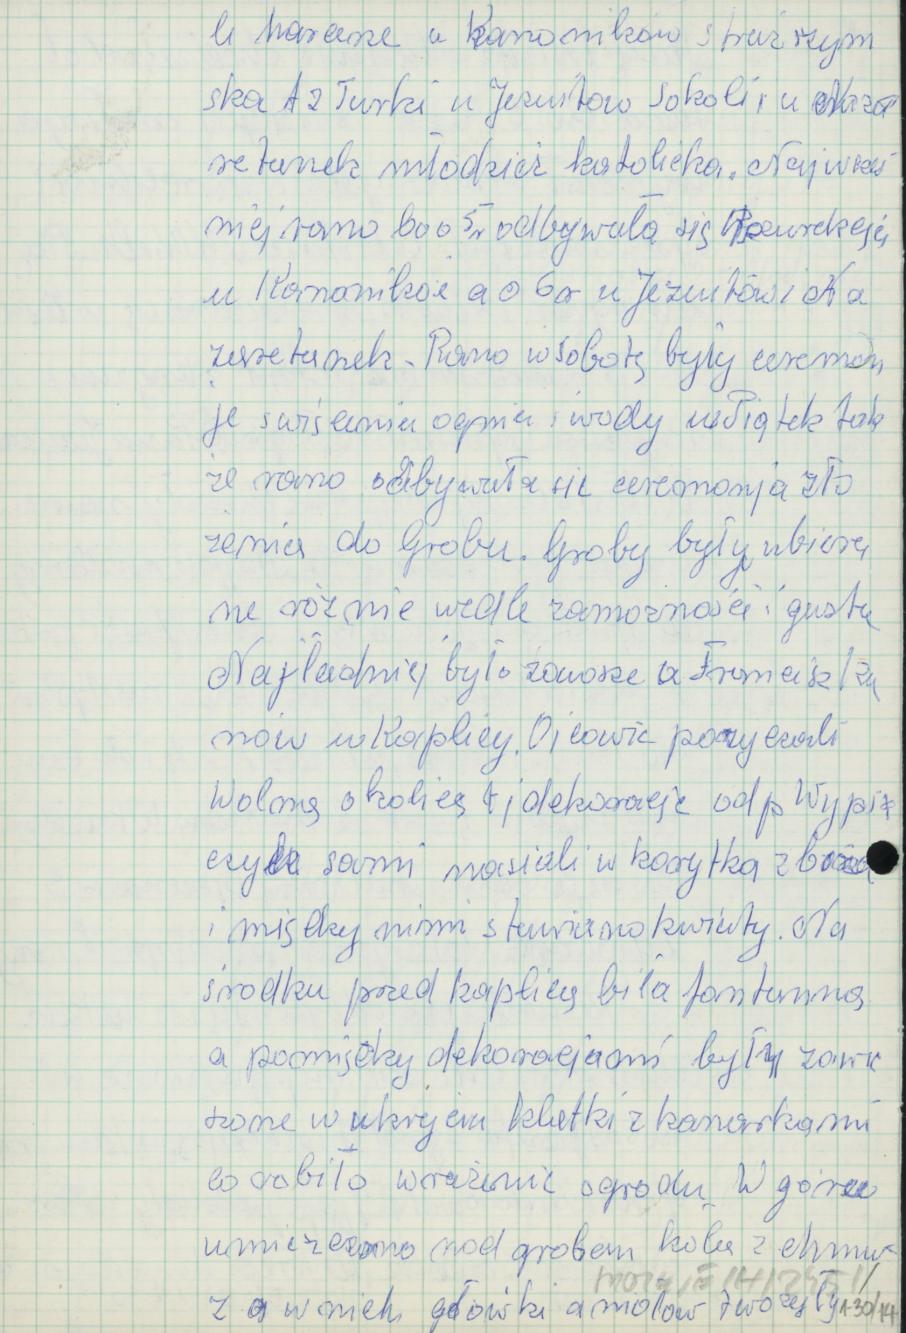 u Kanoników
ska i z Turki u Jezuitów Sokoli i u Naza
retanek młodzież katolicka. Najwcześ
niej rano bo o 5r odbywała się Rezurekcja
u Kanoników a o 6r u Jezuitów i Na
zaretanek. Rano w sobotę były ceremon
je święcenia ognia i wody w Piątek tak
że rano odbywała się ceremonja zło
żenia do Grobu. Groby były ubiera
ne różnie wedle zamożności i gustu
Najładniej było zawsze u Franciszka
nów w Kaplicy. Ojcowie pożyczali
wolną okolicę i dekoracje od p
sami nasiali w korytka zboża
i między nimi stawiano kwiaty. Na
środku przed kaplicą biła fontanna
a pomiędzy dekoracjami były zawie
szone w ukryciu klatki z kanarkami
co robiło wrażenie ogrodu. W górze
umieszczono nad grobem koła z chmur
z a w nich główki amorów tworzyły
1-30/14